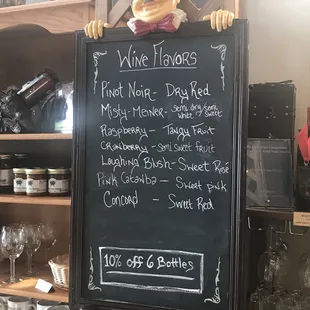 Wine Flavors
Pinot Noir - Dry Red
Misty-Meiner - semi dry/semi sweet white
Raspberry - Tangy Fruit
Cranberry - semi sweet fruit
Laughing Blush - Sweet Rosé
Pink Catawba - Sweet pink
Concord - Sweet Red
10% off 6 Bottles